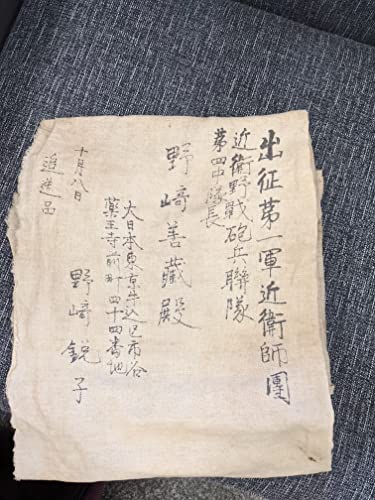 出征第一軍近衛師團
近衛野戰砲兵聯隊
第四中隊長
野崎善藏殿
大日本東京牛込区市谷
藥王寺前町四十四番地
野崎鋭子
十月八日
追送品